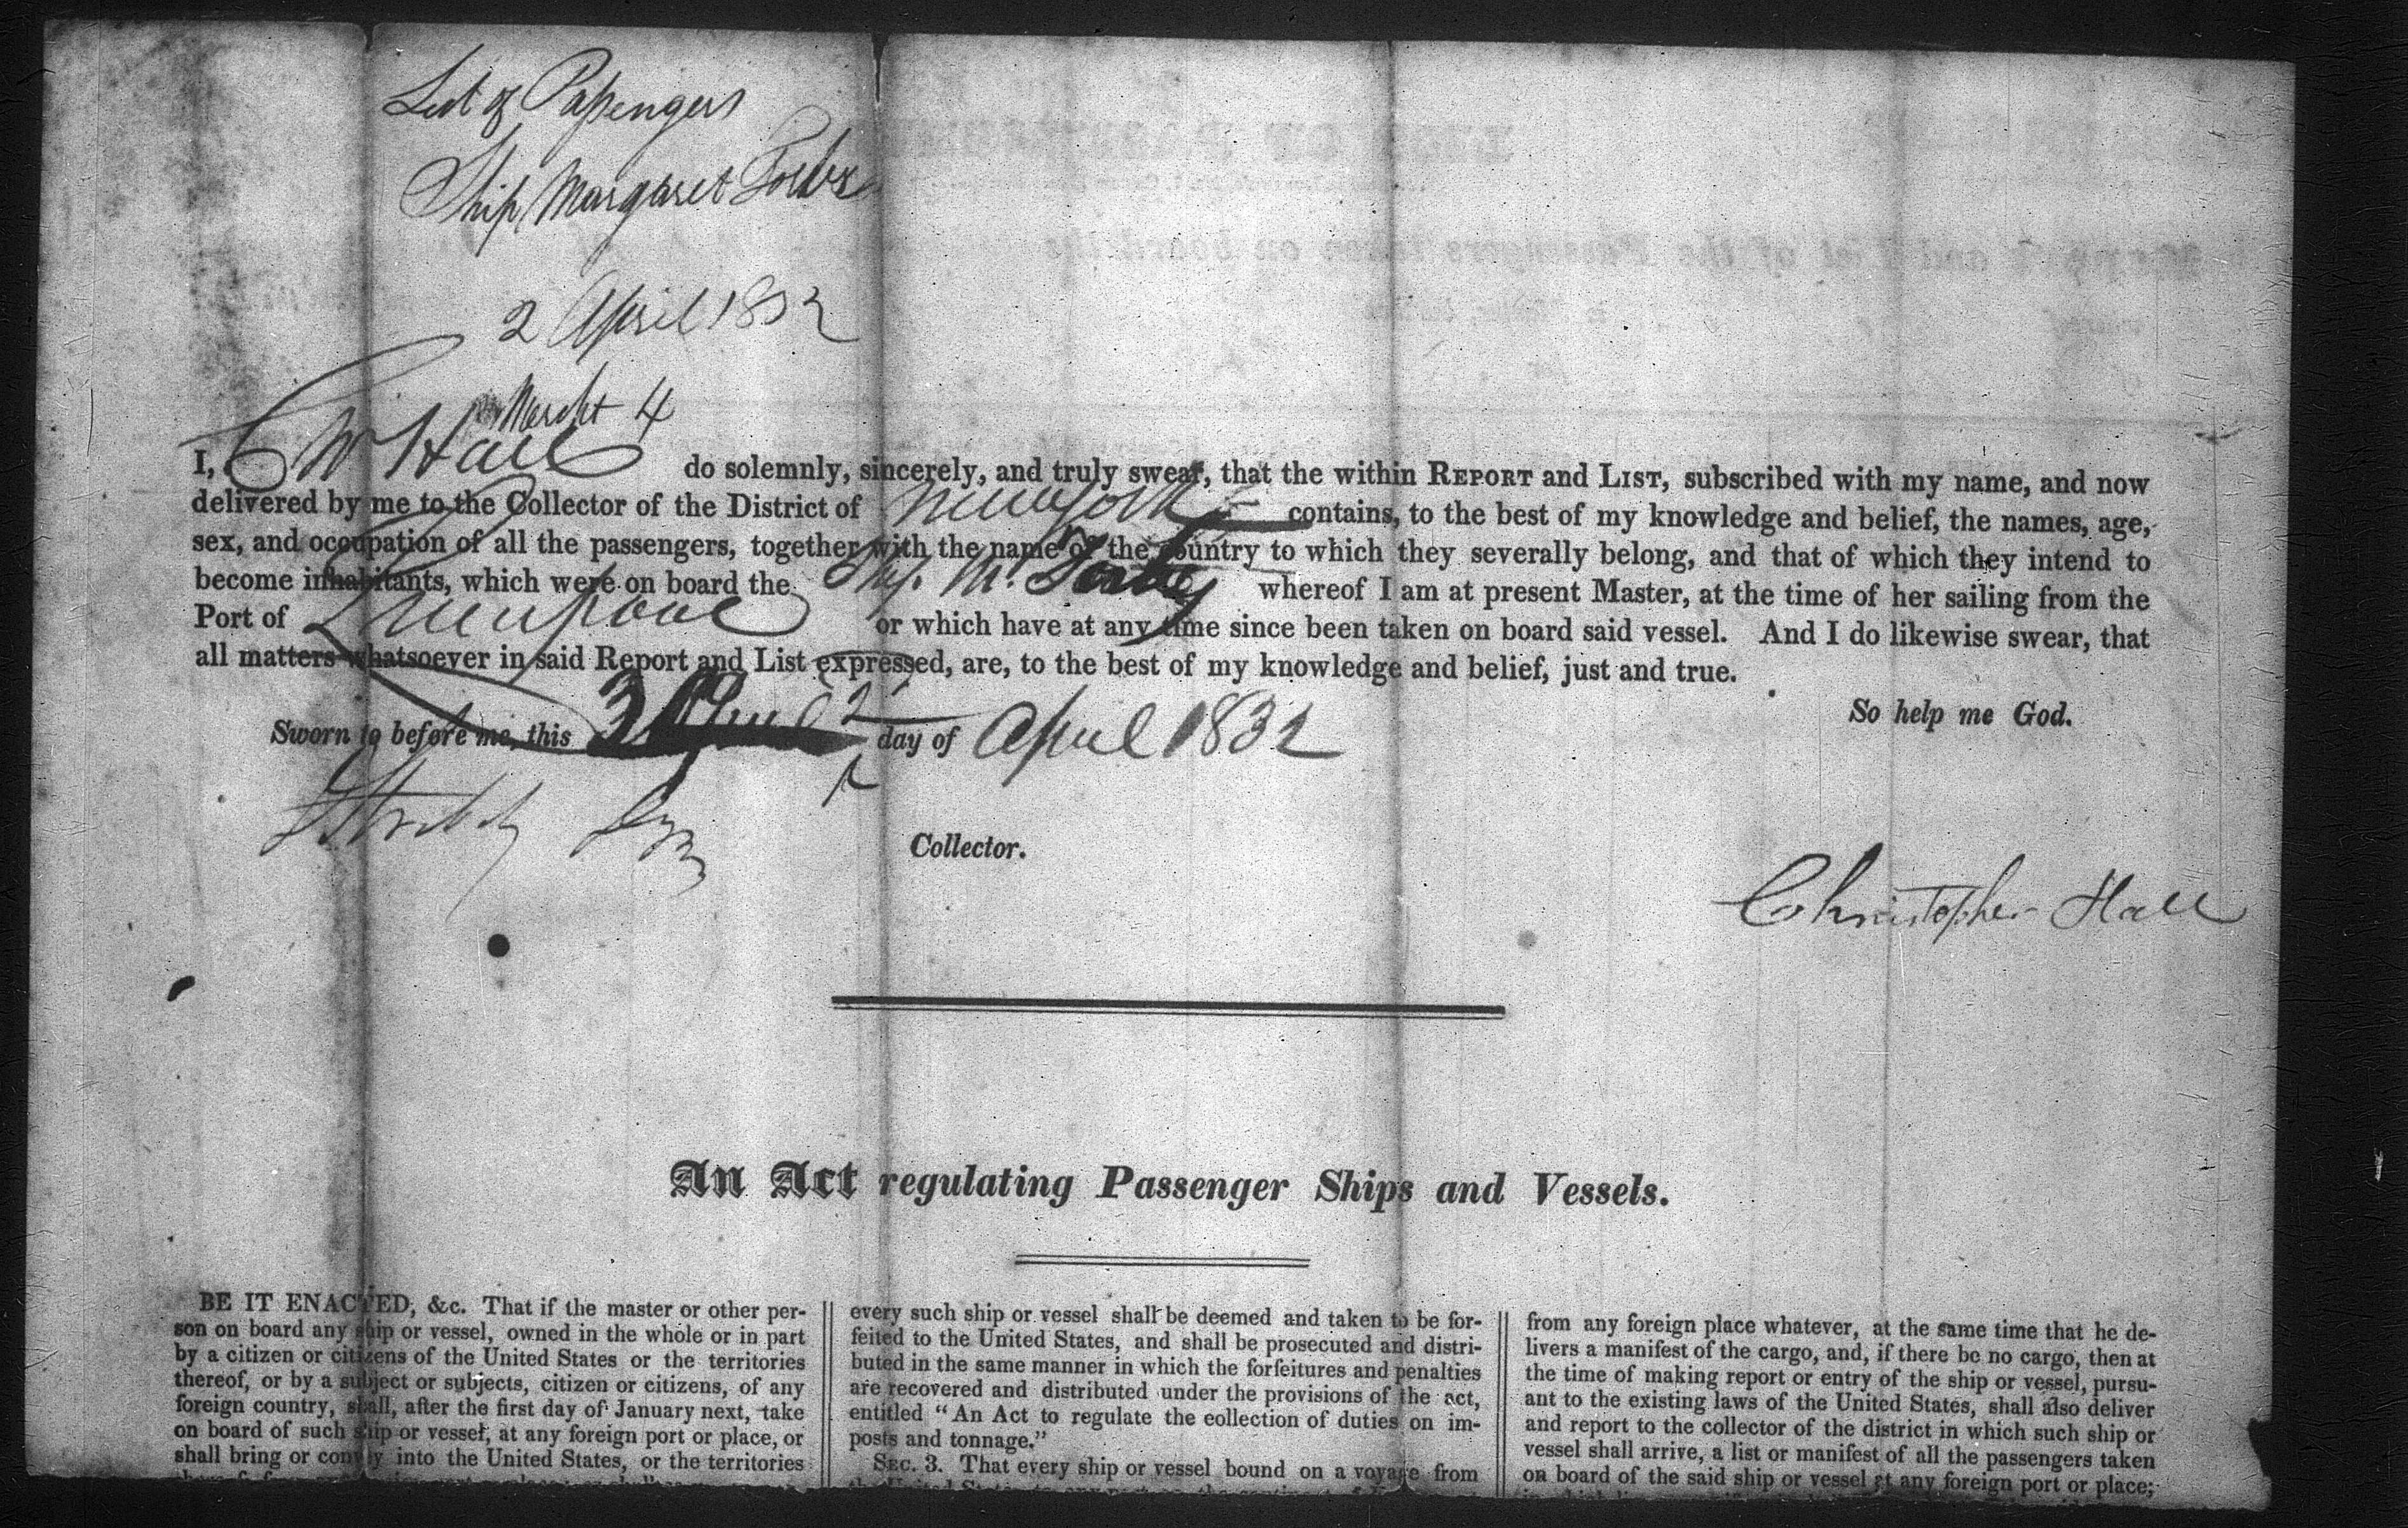 List of Passengers
Ship Margaret Forbes
2 April 1832
March 4
I, C W Hall do solemnly, sincerely, and truly swear, that the within REPORT and LIST, subscribed with my name, and now
delivered by me to the Collector of the District of New York contains, to the best of my knowledge and belief, the names, age,
sex, and occupation of all the passengers, together with the name of the country to which they severally belong, and that of which they intend to
become inhabitants, which were on board the Ship M. Forbes whereof I am at present Master, at the time of her sailing from the
Port of Liverpool or which have at any time since been taken on board said vessel. And I do likewise swear, that
all matters whatsoever in said Report and List expressed, are, to the best of my knowledge and belief, just and true.
So help me God.
Sworn to before me, this 2 day of April 1832
Collector.
Christopher Hall
An Act regulating Passenger Ships and Vessels.
BE IT ENACTED, &c. That if the master or other per-
son on board any ship or vessel, owned in the whole or in part
by a citizen or citizens of the United States or the territories
thereof, or by a subject or subjects, citizen or citizens, of any
foreign country, shall, after the first day of January next, take
on board of such ship or vessel, at any foreign port or place, or
shall bring or convey into the United States, or the territories
every such ship or vessel shall be deemed and taken to be for-
feited to the United States, and shall be prosecuted and distri-
buted in the same manner in which the forfeitures and penalties
are recovered and distributed under the provisions of the act,
entitled "An Act to regulate the collection of duties on im-
posts and tonnage."
SEC. 3. That every ship or vessel bound on a voyage from
from any foreign place whatever, at the same time that he de-
livers a manifest of the cargo, and, if there be no cargo, then at
the time of making report or entry of the ship or vessel, pursu-
ant to the existing laws of the United States, shall also deliver
and report to the collector of the district in which such ship or
vessel shall arrive, a list or manifest of all the passengers taken
on board of the said ship or vessel at any foreign port or place;